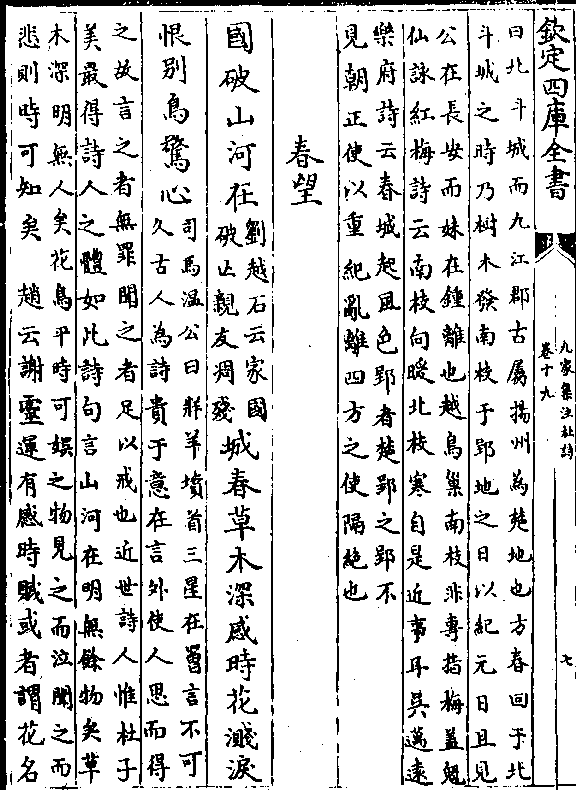 欽定四庫全書
九家集注杜詩
卷十九
七
曰北斗城而九江郡古屬揚州為楚地也方春回于北
斗城之時乃樹木發南枝于郢地之日以紀元日且見
公在長安而妹在鍾離也越鳥巢南枝非專指梅蓋魁
仙詠紅梅詩云南枝向暖北枝寒自是近事耳吳邁遠
樂府詩云春城起風色郢者楚郢之郢不
見朝正使以重紀亂離四方之使隔絶也
春望
國破山河在劉越石云家國
破亡親友凋殘城春草木深感時花濺淚
恨别鳥驚心司馬温公曰牂羊墳首三星在罶言不可
久古人為詩貴于意在言外使人思而得
之故言之者無罪聞之者足以戒也近世詩人惟杜子
美最得詩人之體如此詩句言山河在明無餘物矣草
木深明無人矣花鳥平時可娯之物見之而泣聞之而
悲則時可知矣 趙云謝靈運有感時賦或者謂花名